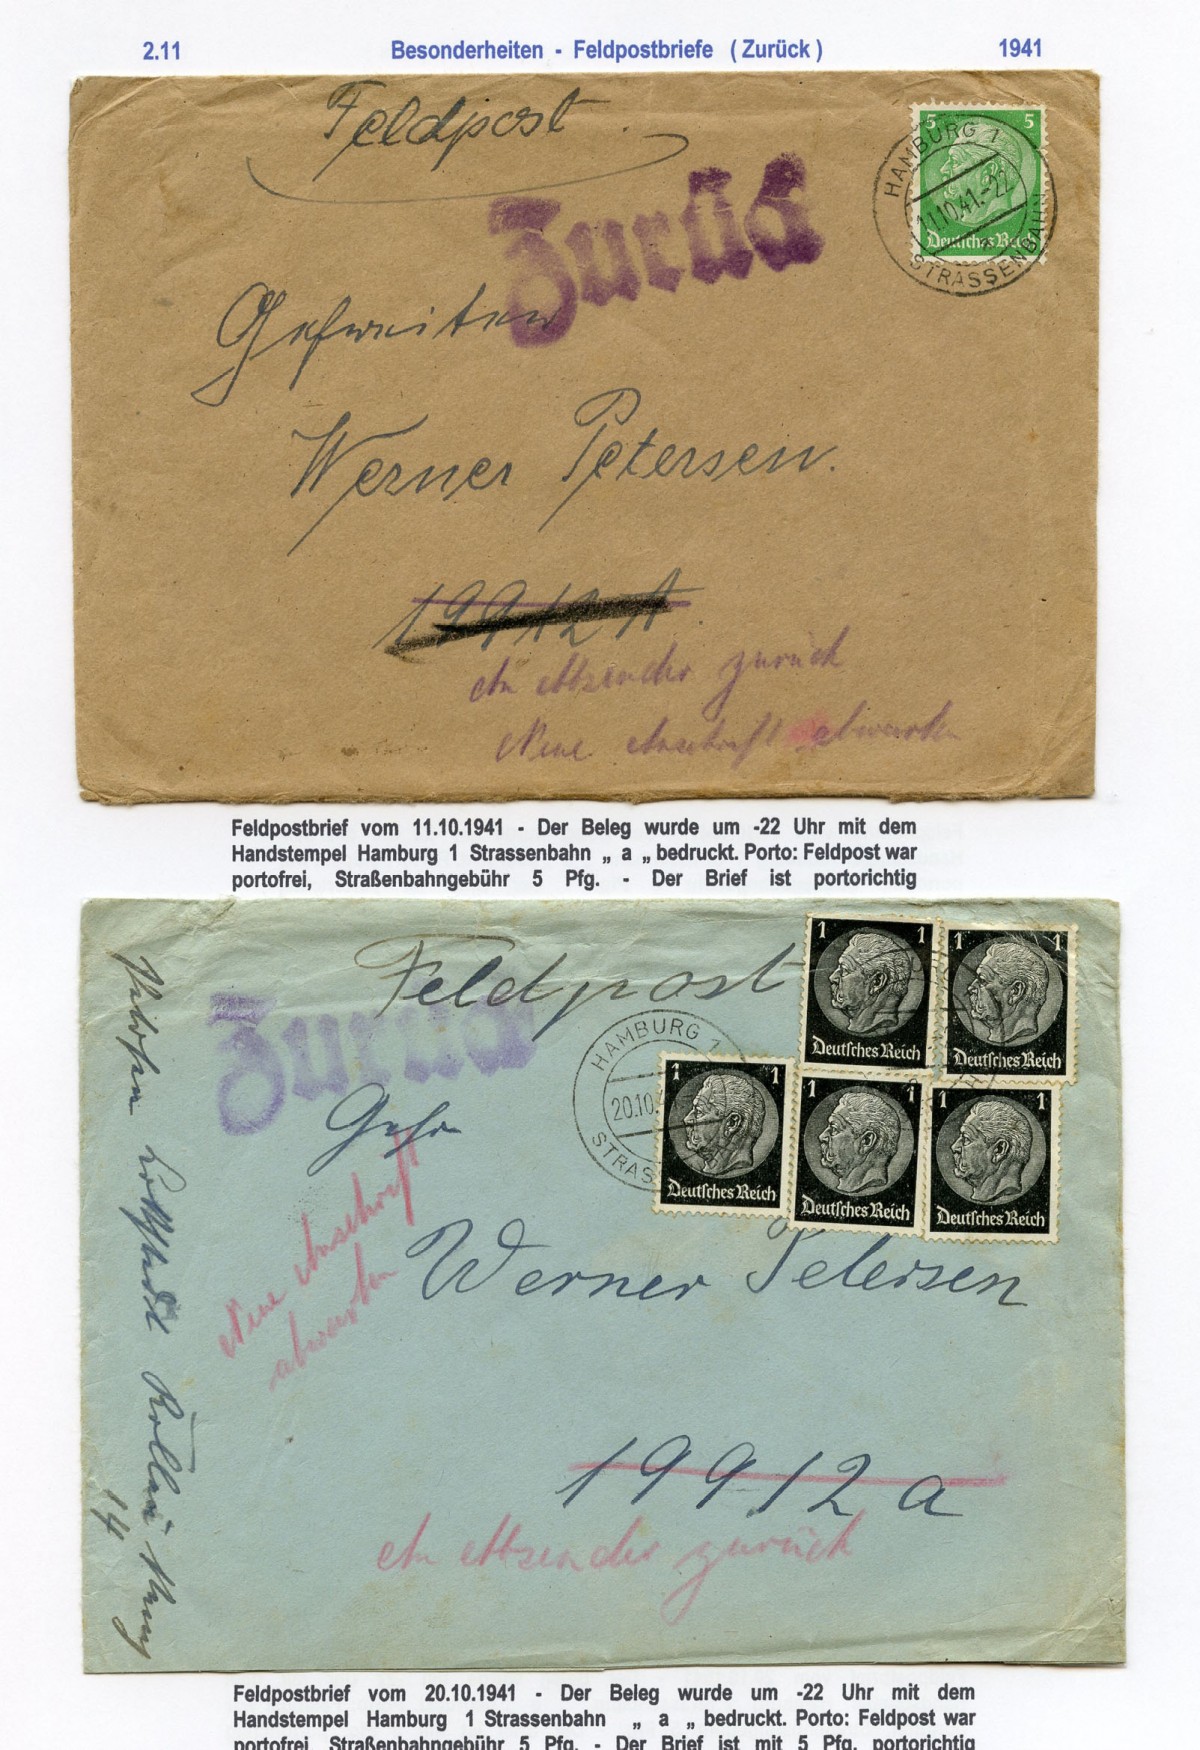 2.11 Besonderheiten - Feldpostbriefe ( Zurück ) 1941
Feldpost
5 5
Deutsches Reich
HAMBURG 1
11.10.41.-22
a
STRASSENBAHN
Zurück
Gefreiten
Werner Petersen.
19912 A
An Absender zurück
Neue Anschrift abwarten
Feldpostbrief vom 11.10.1941 - Der Beleg wurde um -22 Uhr mit dem
Handstempel Hamburg 1 Strassenbahn „ a „ bedruckt. Porto: Feldpost war
portofrei, Straßenbahngebühr 5 Pfg. - Der Brief ist portorichtig
Feldpost
1 1
Deutsches Reich
1 1
Deutsches Reich
1 1
Deutsches Reich
1 1
Deutsches Reich
1 1
Deutsches Reich
HAMBURG 1
20.10.
STRAS
Zurück
Gefr.
Werner Petersen
Neue Anschrift
abwarten
19912 a
An Absender zurück
14
Feldpostbrief vom 20.10.1941 - Der Beleg wurde um -22 Uhr mit dem
Handstempel Hamburg 1 Strassenbahn „ a „ bedruckt. Porto: Feldpost war
portofrei, Straßenbahngebühr 5 Pfg. - Der Brief ist mit 5 Pfg. portorichtig